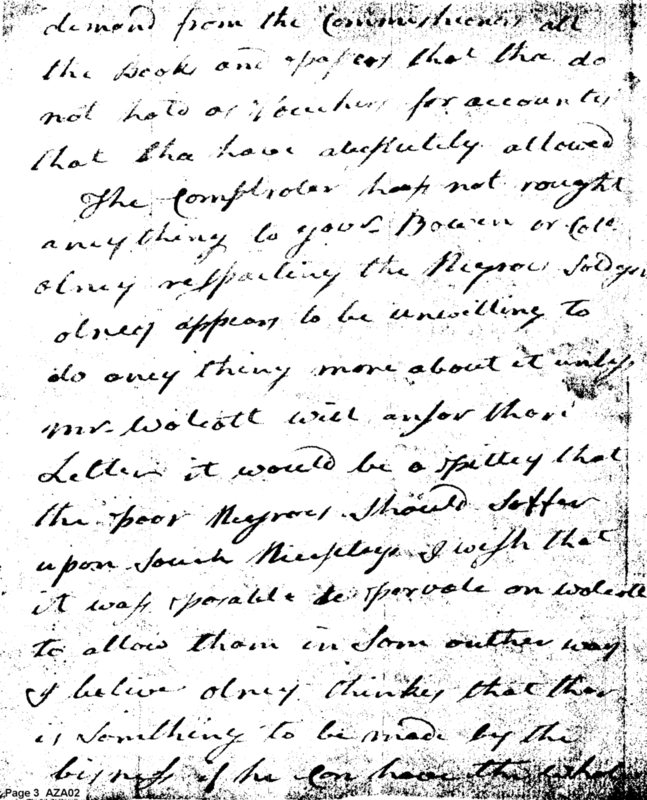 demand from the Commishoners all
the Books and papers that tha do
not hold as Vouchers for accounts
that tha have absplutely allowed
The Compstroler hass not rought
aney thing to govr Bowen or Colo
olney respecting the Negros Soldgers
olney appears to be unwilling to
do aney thing more about it unless
mr. Wolcott will ansor thare
Letter it would be a pittey that
the poor Negroes should soffer
upon such I wish that
it wass posable to on wolcott
to allow tham in som outher way
I belive olney thinkes that thar
is something to be made by the
bisness if he can have the whol
Page 3 AZA02